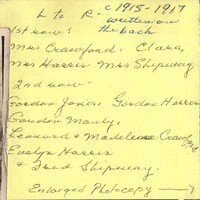 L to R. c 1915-1917
written on
the back
1st row:
Mrs Crawford. Clara,
Mrs Harris Mrs Shipway
2nd row
Gordon Jones, Gordon Harris
Gordon Manly,
Leonard & Madeleine Crawford
Evelyn Harris
& Fred Shipway.
Enlarged Photocopy